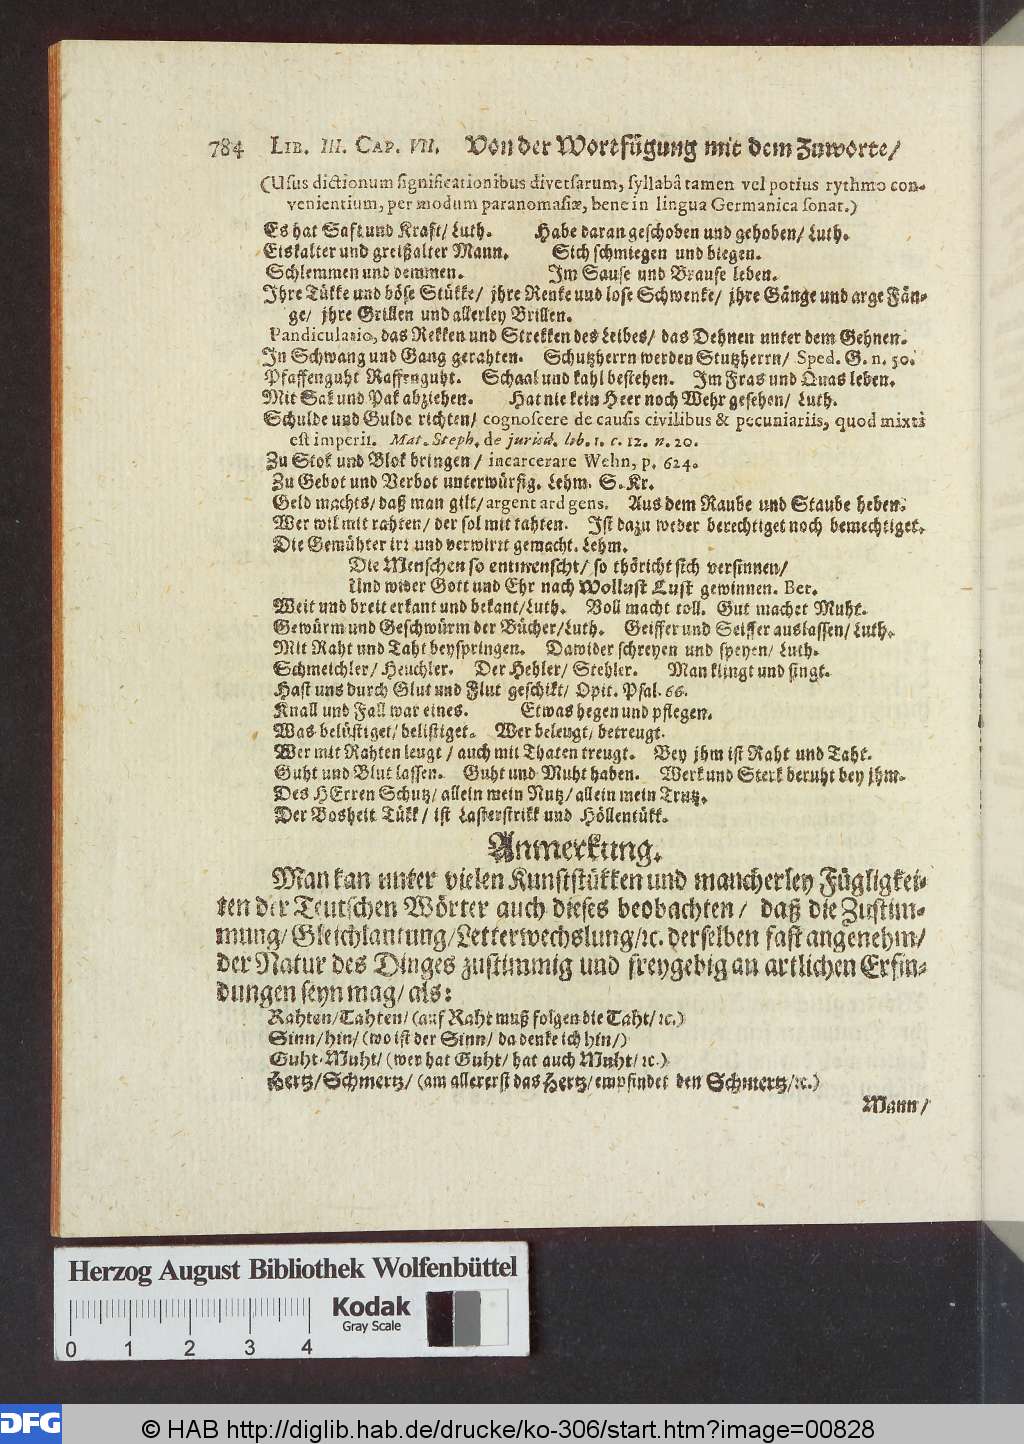 784 LIB. III. CAP. VII. Von der Wortfügung mit dem Zuworte/
(Usus dictionum significationibus diversarum, syllabâ tamen vel potius rythmo con-
venientium, per modum paranomasiæ, bene in lingua Germanica sonat.)
Es hat Saft und Kraft/ Luth. Habe daran geschoben und gehoben/ Luth.
Eiskalter und greißalter Mann. Sich schmiegen und biegen.
Schlemmen und demmen. Im Sause und Brause leben.
Ihre Tükke und böse Stükke/ jhre Renke und lose Schwenke/ jhre Gänge und arge Fän-
ge/ jhre Grillen und allerley Brillen.
Pandiculatio, das Rekken und Strekken des Leibes/ das Dehnen unter dem Gehnen.
In Schwang und Gang gerahten. Schutzherrn werden Stutzherrn/ Sped. G. n. 50.
Pfaffenguht Raffenguht. Schaal und kahl bestehen. Im Fras und Quas leben.
Mit Sak und Pak abziehen. Hat nie kein Heer noch Wehr gesehen/ Luth.
Schulde und Gulde richten/ cognoscere de causis civilibus & pecuniariis, quod mixti
est imperii. Mat. Steph. de jurisd. lib. 1. c. 12. n. 20.
Zu Stok und Blok bringen/ incarcerare Wehn, p. 624.
Zu Gebot und Verbot unterwürfig. Lehm. S. Kr.
Geld machts/ daß man gilt/ argent ard gens. Aus dem Raube und Staube heben.
Wer wil mit rahten/ der sol mit tahten. Ist dazu weder berechtiget noch bemechtiget.
Die Gemühter irr und verwirrt gemacht. Lehm.
Die Menschen so entmenscht/ so thöricht sich versinnen/
Und wider Gott und Ehr nach Wollust Lust gewinnen. Ber.
Weit und breit erkant und bekant/ Luth. Voll macht toll. Gut machet Muht.
Gewürm und Geschwürm der Bücher/ Luth. Geiffer und Seiffer auslassen/ Luth.
Mit Raht und Taht beyspringen. Dawider schreyen und speyen/ Luth.
Schmeichler/ Heuchler. Der Hehler/ Stehler. Man klingt und singt.
Hast uns durch Glut und Flut geschikt/ Opit. Psal. 66.
Knall und Fall war eines. Etwas hegen und pflegen.
Was belüstiget/ belistiget. Wer beleugt/ betreugt.
Wer mit Rahten leugt/ auch mit Thaten treugt. Bey jhm ist Raht und Taht.
Guht und Blut lassen. Guht und Muht haben. Werk und Sterk beruht bey jhm.
Des HErren Schutz/ allein mein Nutz/ allein mein Trutz.
Der Bosheit Tükk/ ist Lasterstrikk und Höllentükk.
Anmerkung.
Man kan unter vielen Kunststükken und mancherley Fügligkei-
ten der Teutschen Wörter auch dieses beobachten/ daß die Zustim-
mung/ Gleichlautung/ Letterwechslung/ ꝛc. derselben fast angenehm/
der Natur des Dinges zustimmig und freygebig an artlichen Erfin-
dungen seyn mag/ als:
Rahten/ Tahten/ (auf Raht muß folgen die Taht/ ꝛc.)
Sinn/ hin/ (wo ist der Sinn/ da denke ich hin/)
Guht-Muht/ (wer hat Guht/ hat auch Muht/ ꝛc.)
Hertz/ Schmertz/ (am allererst das Hertz/ empfindet den Schmertz/ ꝛc.)
Mann/
Herzog August Bibliothek Wolfenbüttel
Kodak
Gray Scale
0 1 2 3 4
DFG © HAB http://diglib.hab.de/drucke/ko-306/start.htm?image=00828